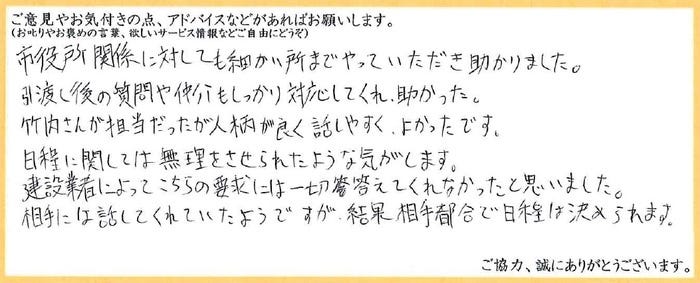 ご意見やお気付きの点、アドバイスなどがあればお願いします。
(お叱りやお褒めの言葉、欲しいサービス情報などご自由にどうぞ)
市役所関係に対しても細かい所までやっていただき助かりました。
引渡し後の質問や仲介もしっかり対応してくれ、助かった。
竹内さんが担当だったが人柄が良く話しやすく、よかったです。
日程に関しては無理をさせられたような気がします。
建設業者によってこちらの要求には一切答答えてくれなかったと思いました。
相手には話してくれていたようですが、結果、相手都合で日程は決められます。
ご協力、誠にありがとうございます。